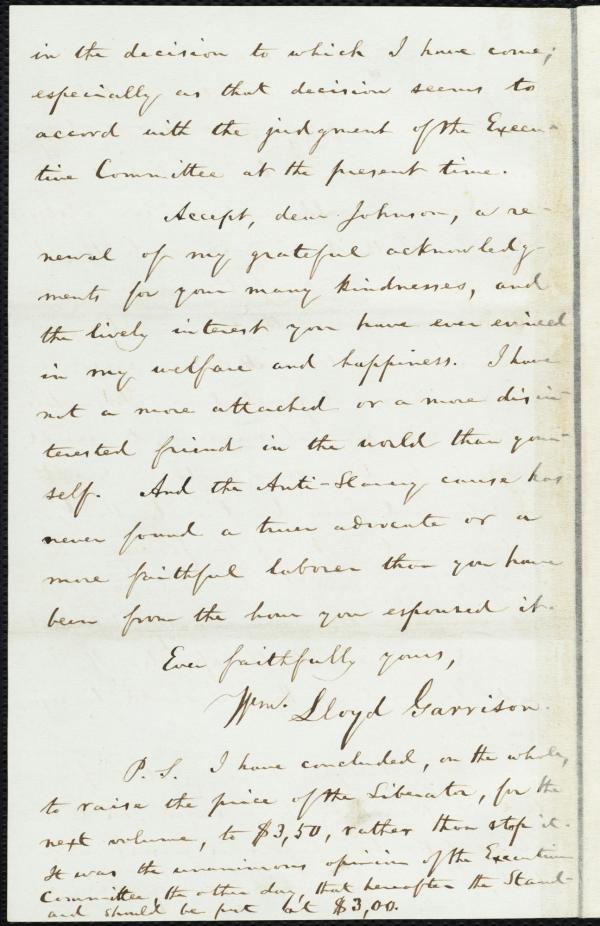 in the decision to which I have come;
especially as that decision seems to
accord with the judgment of the Execu-
tive Committee at the present time.
Accept, dear Johnson, a re-
newal of my grateful acknowledg-
ments for your many kindnesses, and
the lively interest you have ever evinced
in my welfare and happiness. I have
not a more attached or a more disin-
terested friend in the world than your-
self. And the Anti-Slavery cause has
never found a truer advocate or a
more faithful laborer than you have
been from the hour you espoused it.
Ever faithfully yours,
Wm. Lloyd Garrison.
P. S. I have concluded, on the whole,
to raise the price of the Liberator, for the
next volume, to $3,50, rather than stop it.
It was the unanimous opinion of the Executive
Committee, the other day, that hereafter the Stand-
ard should be put at $3,00.